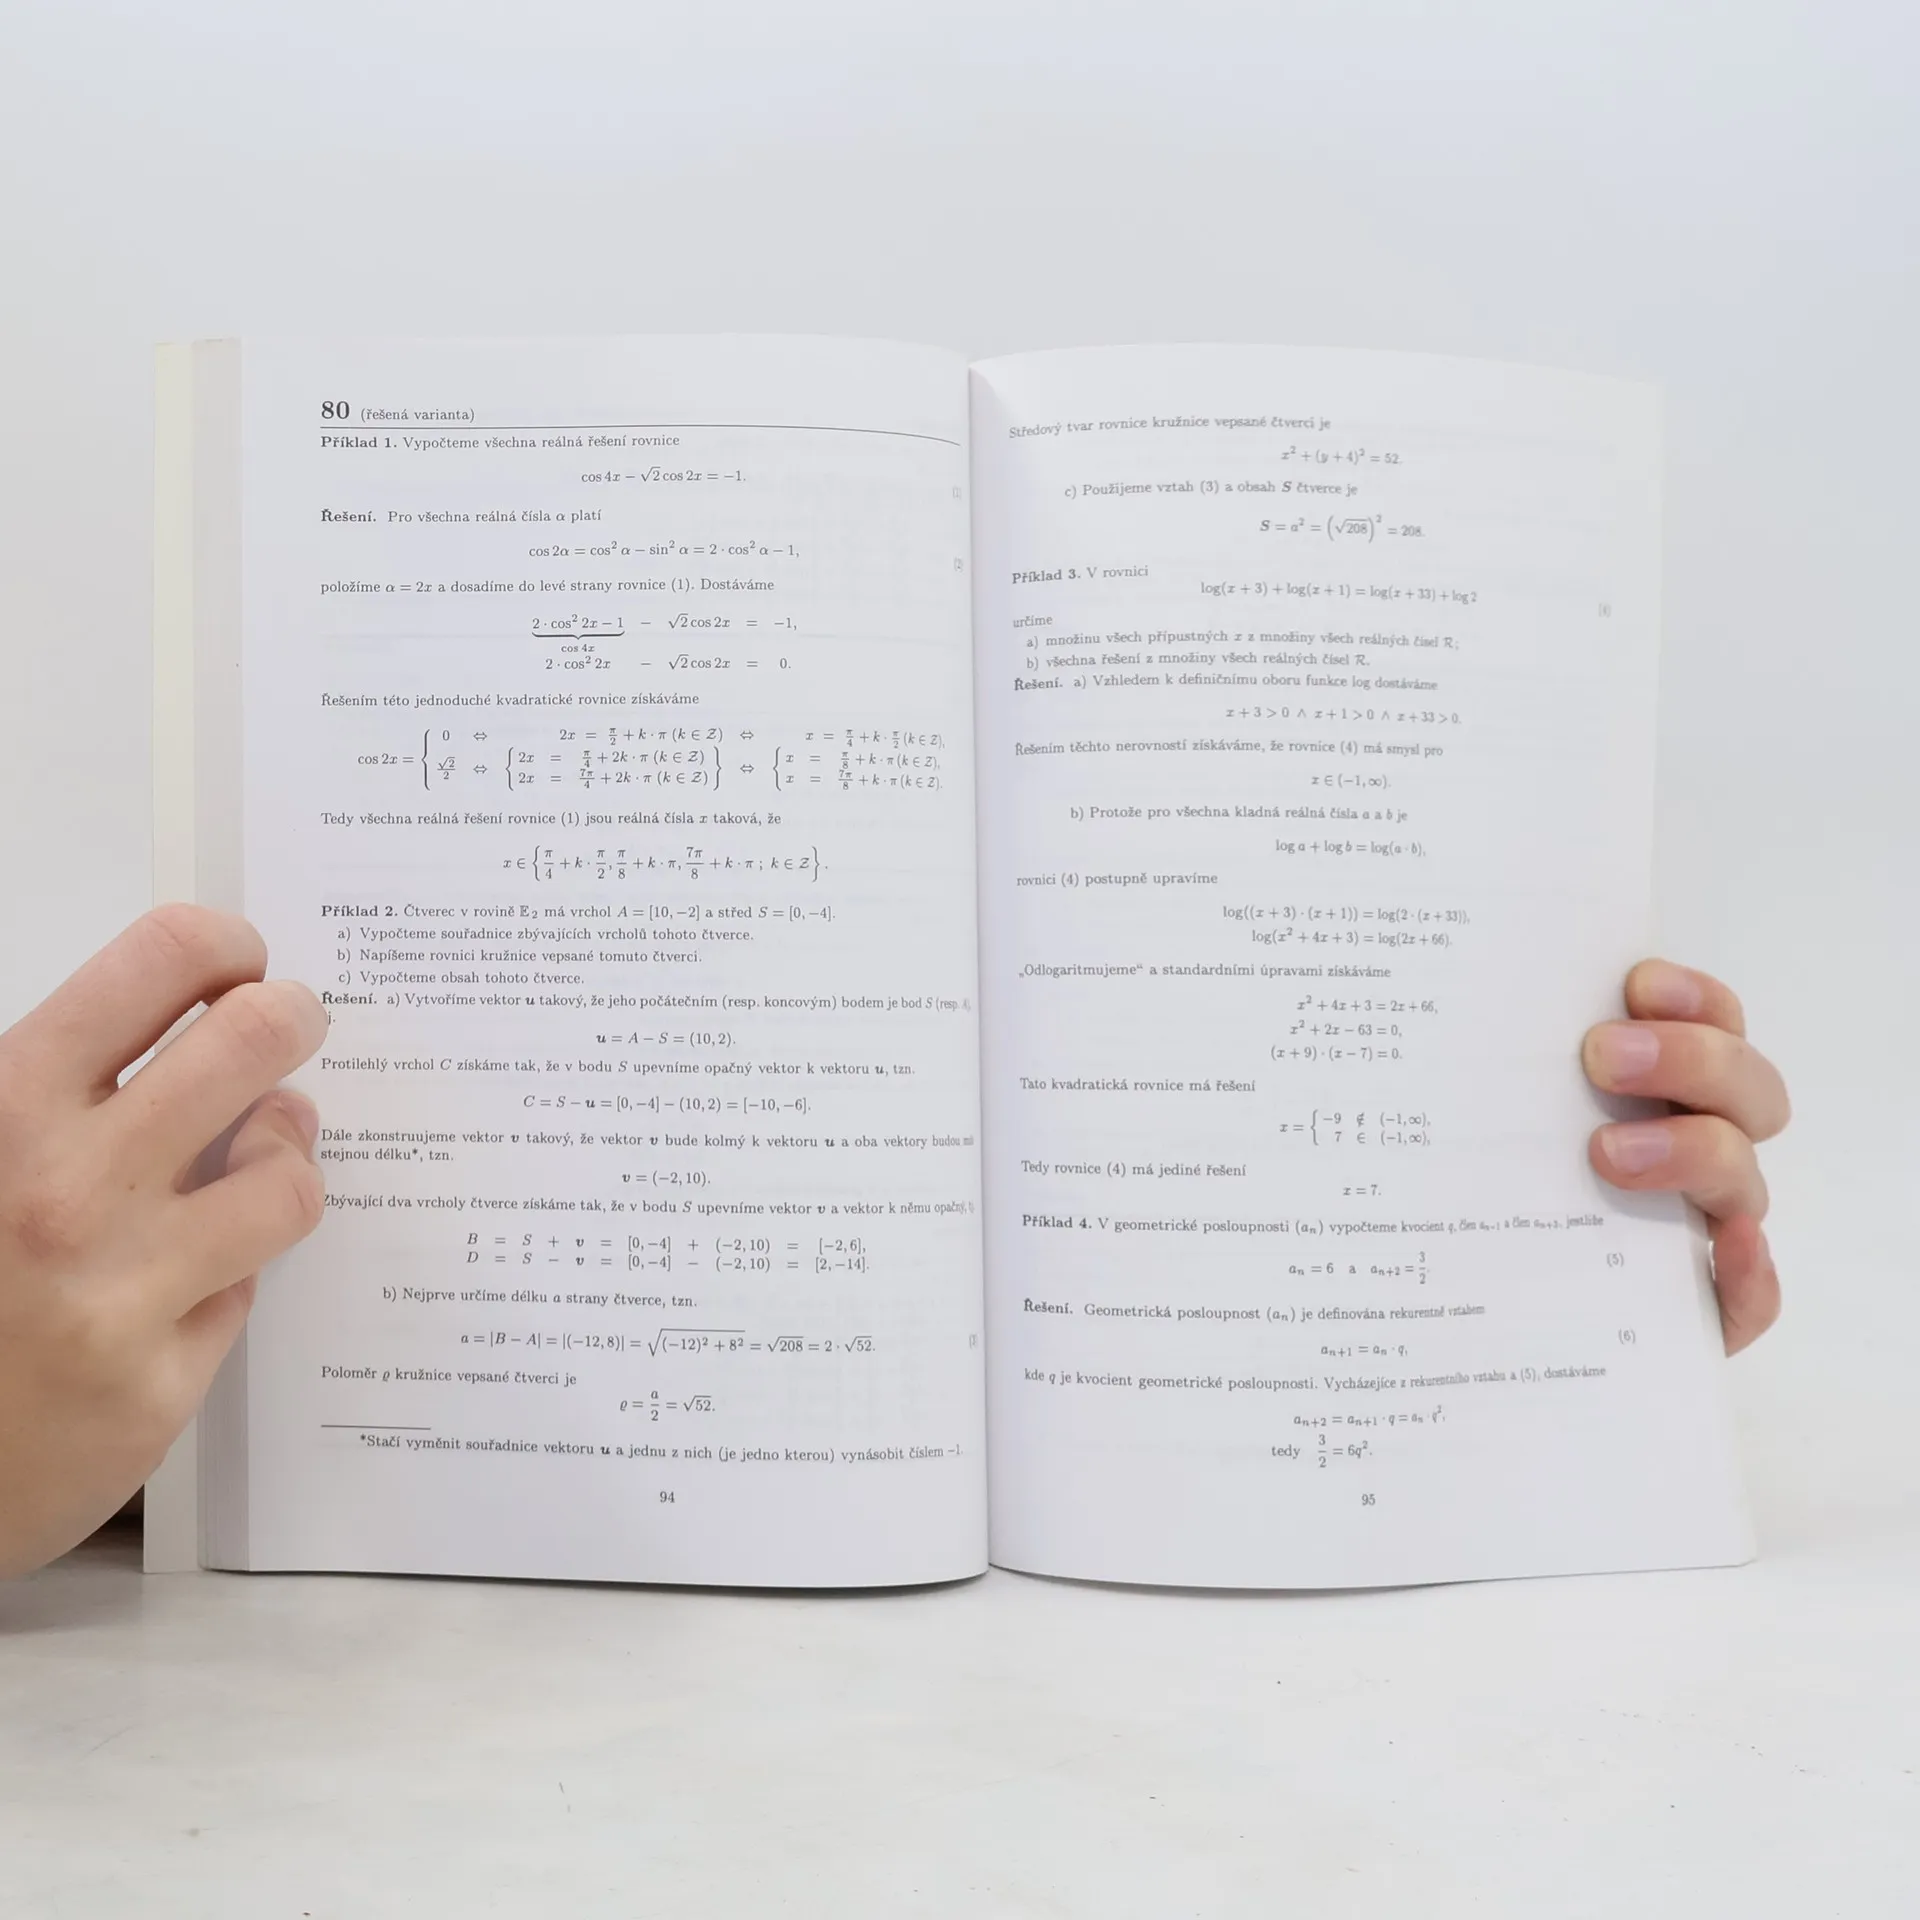 80 (řešená varianta)
Příklad 1. Vypočteme všechna reálná řešení rovnice
cos 4x − √2 cos 2x = −1.
(1)
Řešení. Pro všechna reálná čísla α platí
cos 2α = cos² α − sin² α = 2 · cos² α − 1,
(2)
položíme α = 2x a dosadíme do levé strany rovnice (1). Dostáváme
2 · cos² 2x − 1 − √2 cos 2x = −1,
cos 4x
2 · cos² 2x − √2 cos 2x = 0.
Řešením této jednoduché kvadratické rovnice získáváme
0 ⇔ 2x = π/2 + k · π (k ∈ Z) ⇔ x = π/4 + k · π/2 (k ∈ Z),
cos 2x = { √2/2 ⇔ { 2x = π/4 + 2k · π (k ∈ Z) } ⇔ { x = π/8 + k · π (k ∈ Z),
2x = 7π/4 + 2k · π (k ∈ Z) x = 7π/8 + k · π (k ∈ Z).
Tedy všechna reálná řešení rovnice (1) jsou reálná čísla x taková, že
x ∈ { π/4 + k · π/2, π/8 + k · π, 7π/8 + k · π ; k ∈ Z }.
Příklad 2. Čtverec v rovině E₂ má vrchol A = [10, −2] a střed S = [0, −4].
a) Vypočteme souřadnice zbývajících vrcholů tohoto čtverce.
b) Napíšeme rovnici kružnice vepsané tomuto čtverci.
c) Vypočteme obsah tohoto čtverce.
Řešení. a) Vytvoříme vektor u takový, že jeho počátečním (resp. koncovým) bodem je bod S (resp. A),
j.
u = A − S = (10, 2).
Protilehlý vrchol C získáme tak, že v bodu S upevníme opačný vektor k vektoru u, tzn.
C = S − u = [0, −4] − (10, 2) = [−10, −6].
Dále zkonstruujeme vektor v takový, že vektor v bude kolmý k vektoru u a oba vektory budou mít
stejnou délku*, tzn.
v = (−2, 10).
Zbývající dva vrcholy čtverce získáme tak, že v bodu S upevníme vektor v a vektor k němu opačný,
B = S + v = [0, −4] + (−2, 10) = [−2, 6],
D = S − v = [0, −4] − (−2, 10) = [2, −14].
b) Nejprve určíme délku a strany čtverce, tzn.
a = |B − A| = |(−12, 8)| = √((−12)² + 8²) = √208 = 2 · √52.
(3)
Poloměr ϱ kružnice vepsané čtverci je
ϱ = a/2 = √52.
*Stačí vyměnit souřadnice vektoru u a jednu z nich (je jedno kterou) vynásobit číslem −1.
94
Středový tvar rovnice kružnice vepsané čtverci je
x² + (y + 4)² = 52.
c) Použijeme vztah (3) a obsah S čtverce je
S = a² = (√208)² = 208.
Příklad 3. V rovnici
log(x + 3) + log(x + 1) = log(x + 33) + log 2
(4)
určíme
a) množinu všech přípustných x z množiny všech reálných čísel R;
b) všechna řešení z množiny všech reálných čísel R.
Řešení. a) Vzhledem k definičnímu oboru funkce log dostáváme
x + 3 > 0 ∧ x + 1 > 0 ∧ x + 33 > 0.
Řešením těchto nerovností získáváme, že rovnice (4) má smysl pro
x ∈ (−1, ∞).
b) Protože pro všechna kladná reálná čísla a a b je
log a + log b = log(a · b),
rovnici (4) postupně upravíme
log((x + 3) · (x + 1)) = log(2 · (x + 33)),
log(x² + 4x + 3) = log(2x + 66).
„Odlogaritmujeme“ a standardními úpravami získáváme
x² + 4x + 3 = 2x + 66,
x² + 2x − 63 = 0,
(x + 9) · (x − 7) = 0.
Tato kvadratická rovnice má řešení
x = { −9 ∉ (−1, ∞),
7 ∈ (−1, ∞),
Tedy rovnice (4) má jediné řešení
x = 7.
Příklad 4. V geometrické posloupnosti (aₙ) vypočteme kvocient q, člen aₙ₋₁ a člen aₙ₊₃, jestliže
aₙ = 6 a aₙ₊₂ = 3/2.
(5)
Řešení. Geometrická posloupnost (aₙ) je definována rekurentně vztahem
aₙ₊₁ = aₙ · q,
(6)
kde q je kvocient geometrické posloupnosti. Vycházejíce z rekurentního vztahu a (5), dostáváme
aₙ₊₂ = aₙ₊₁ · q = aₙ · q²,
tedy 3/2 = 6q².
95